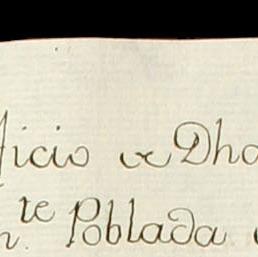 ficio de Dho
n.te Poblada